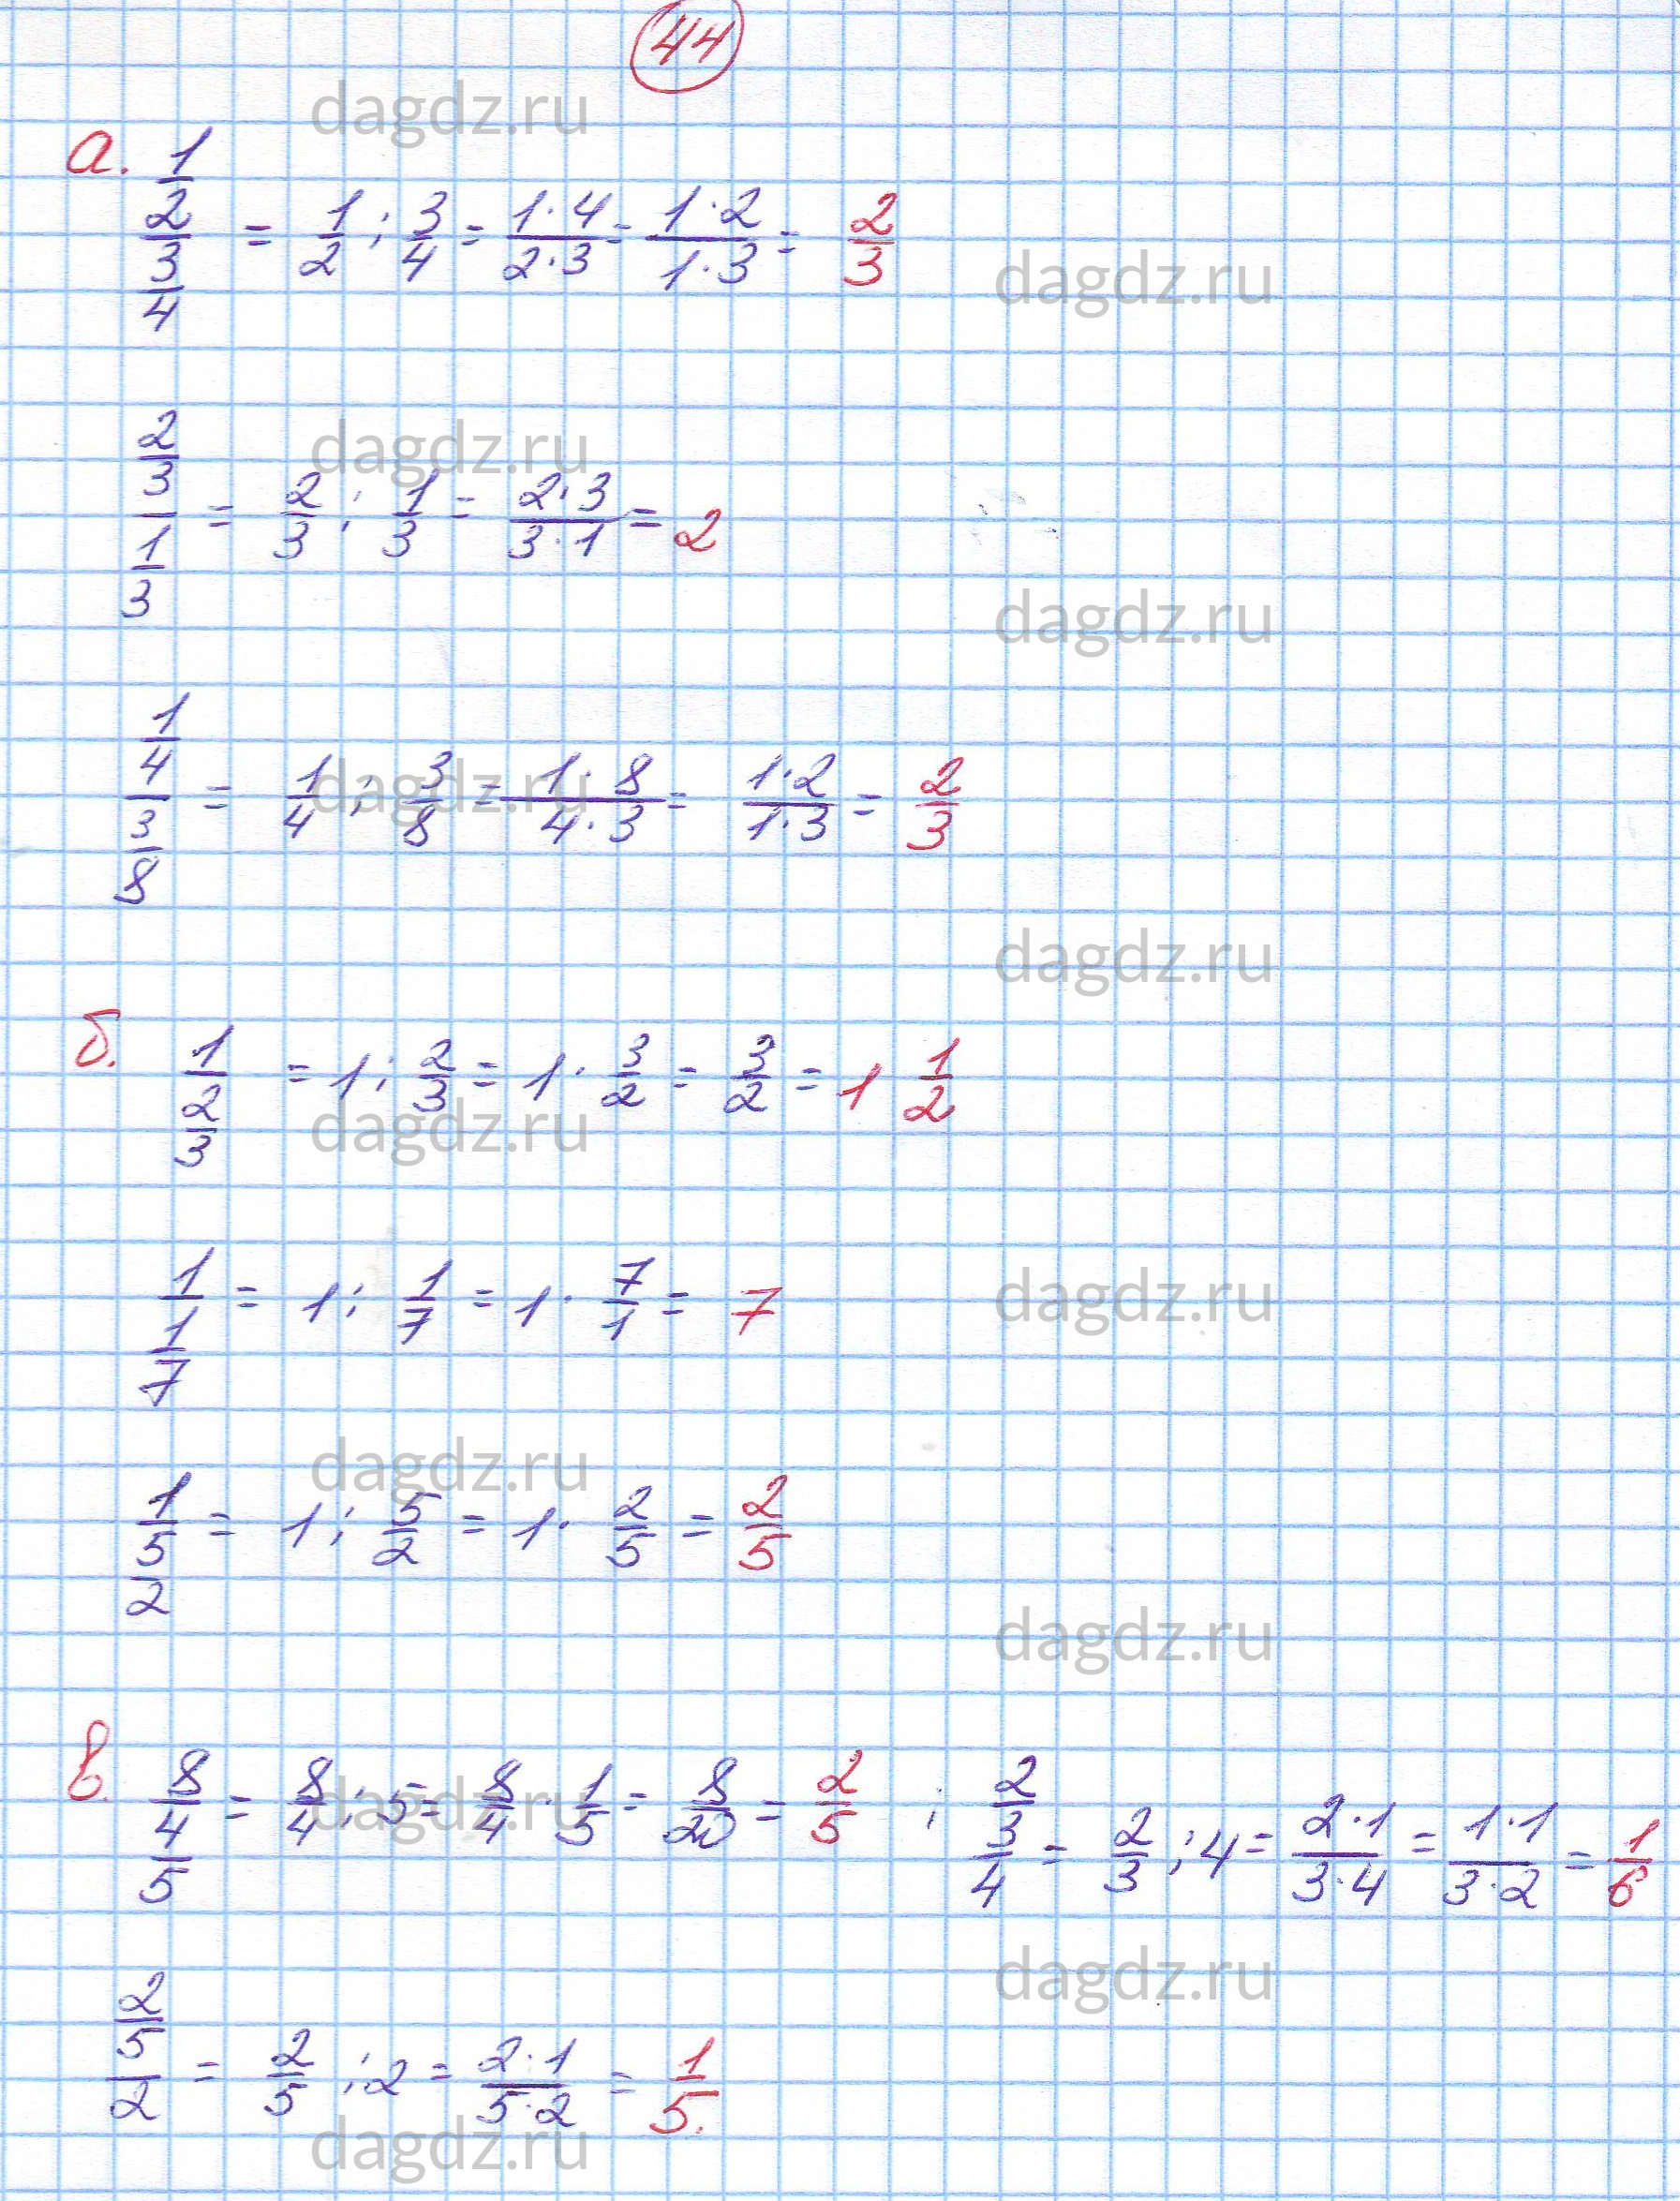 44
dagdz.ru
а. (1/2)/(3/4) = 1/2 : 3/4 = (1·4)/(2·3) = (1·2)/(1·3) = 2/3
dagdz.ru
dagdz.ru
(2/3)/(1/3) = 2/3 : 1/3 = (2·3)/(3·1) = 2
dagdz.ru
(1/4)/(3/8) = 1/4 : 3/8 = (1·8)/(4·3) = (1·2)/(1·3) = 2/3
dagdz.ru
dagdz.ru
б. 1/(2/3) = 1 : 2/3 = 1 · 3/2 = 3/2 = 1 1/2
dagdz.ru
1/(1/7) = 1 : 1/7 = 1 · 7/1 = 7
dagdz.ru
dagdz.ru
1/(5/2) = 1 : 5/2 = 1 · 2/5 = 2/5
dagdz.ru
в. (8/4)/5 = 8/4 : 5 = 8/4 · 1/5 = 8/20 = 2/5 ; (2/3)/4 = 2/3 : 4 = (2·1)/(3·4) = (1·1)/(3·2) = 1/6
dagdz.ru
dagdz.ru
(2/5)/2 = 2/5 : 2 = (2·1)/(5·2) = 1/5.
dagdz.ru